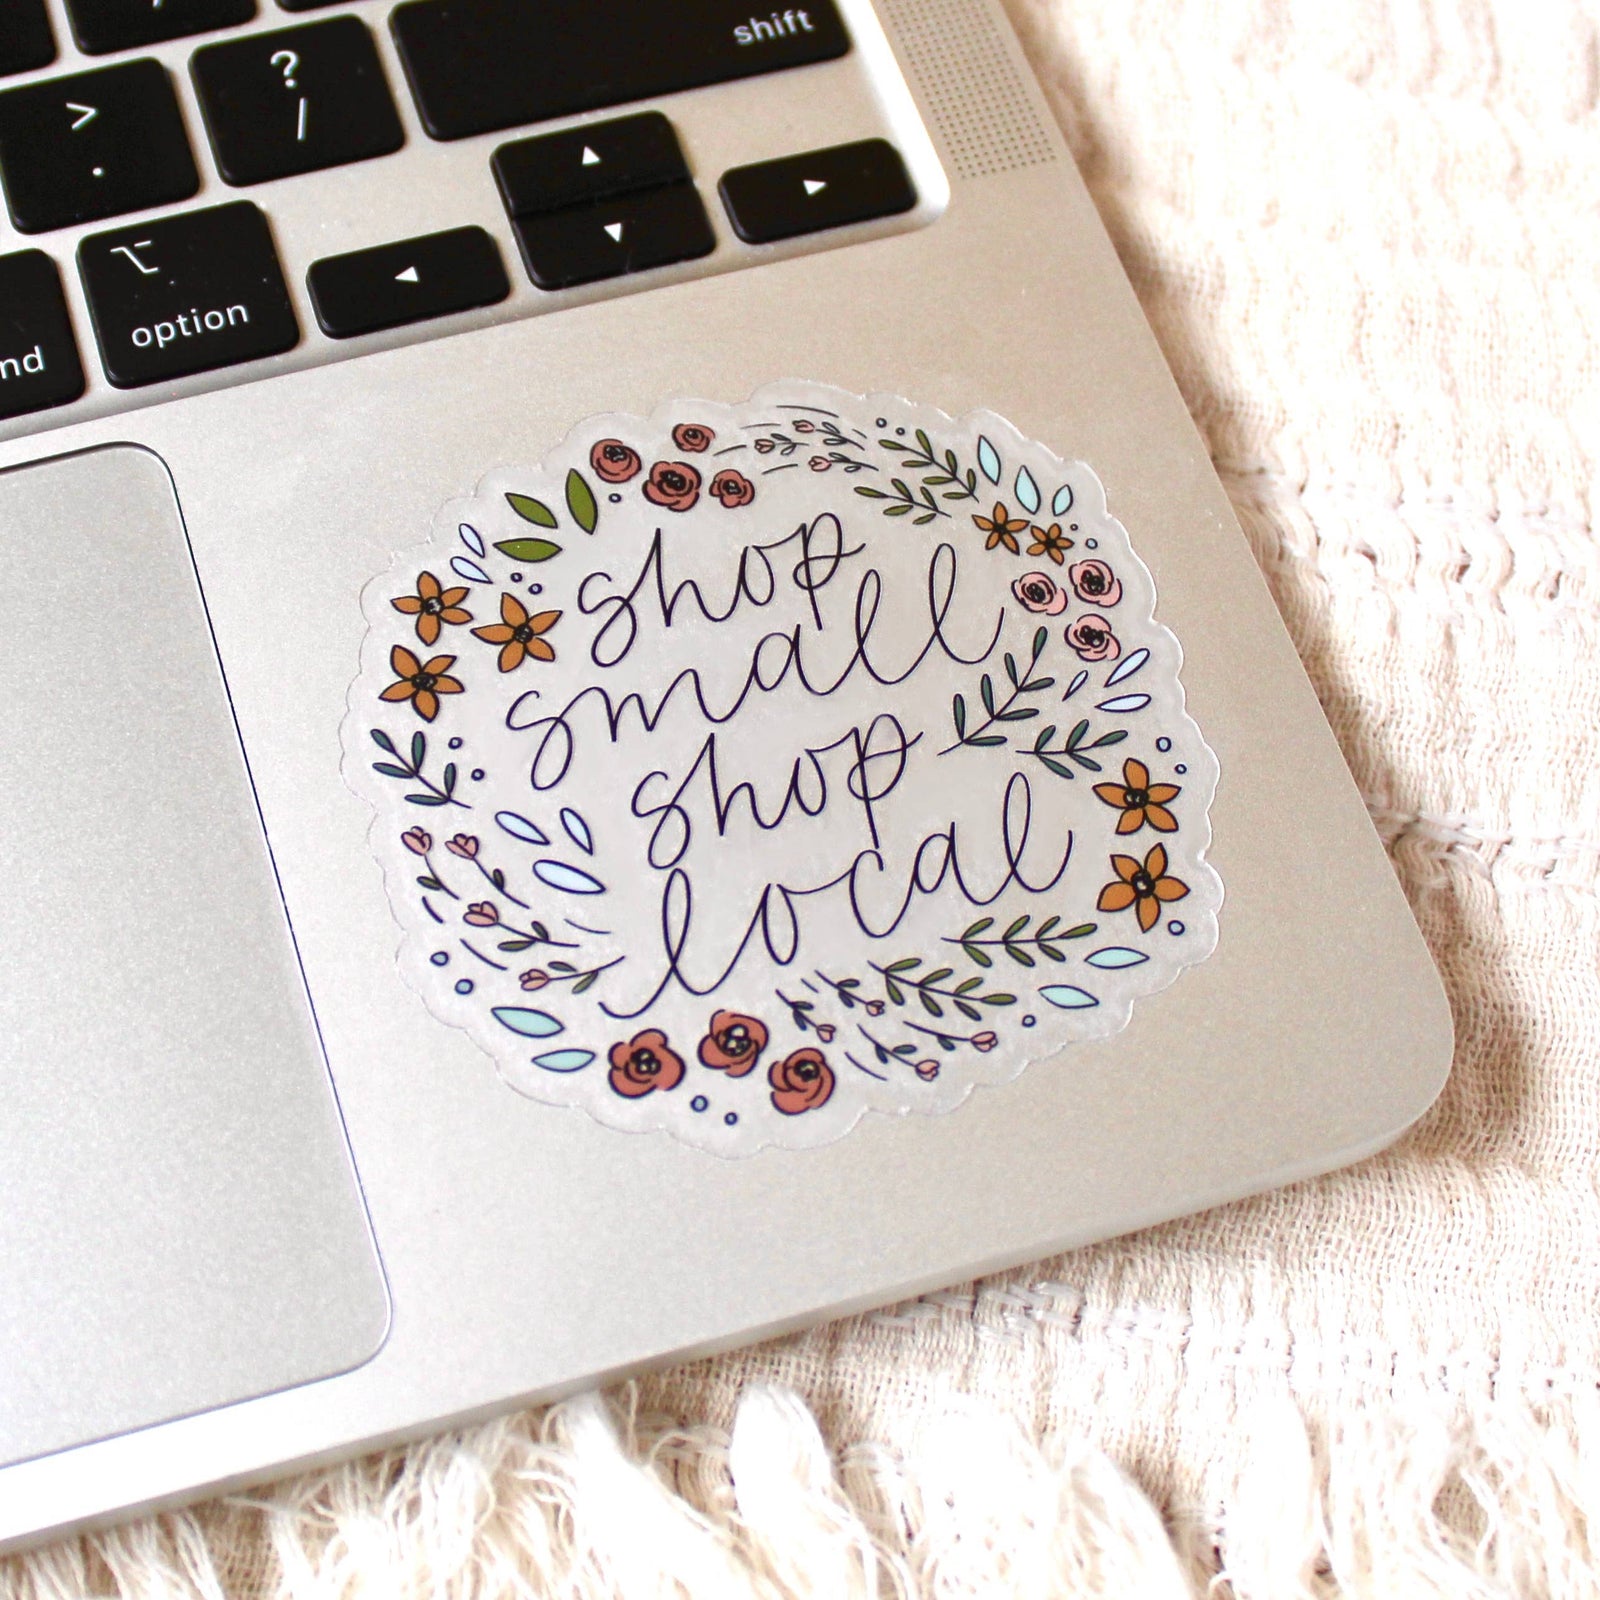 shift
?
/
>
.
option
nd
shop
small
shop
local